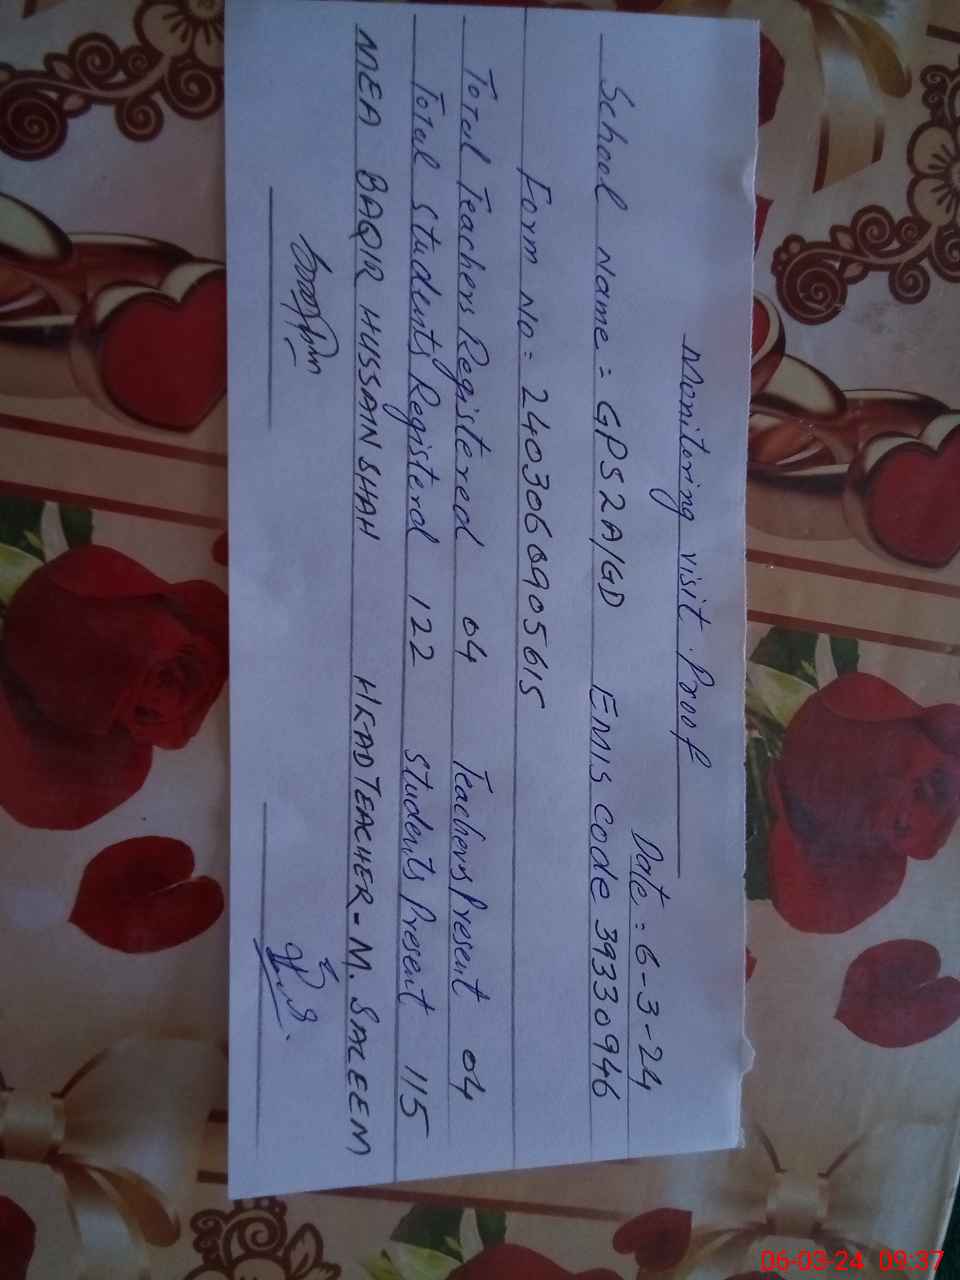 Monitoring visit Proof
Date: 6-3-24
School Name = GPS 2A/GD EMIS code 39330946
Form No = 2403060905615
Total Teachers Registered 04 Teachers Present 04
Total students Registerd 122 students Present 115
MEA BAQIR HUSSAIN SHAH HEADTEACHER - M. SALEEM
06-03-24 09:37